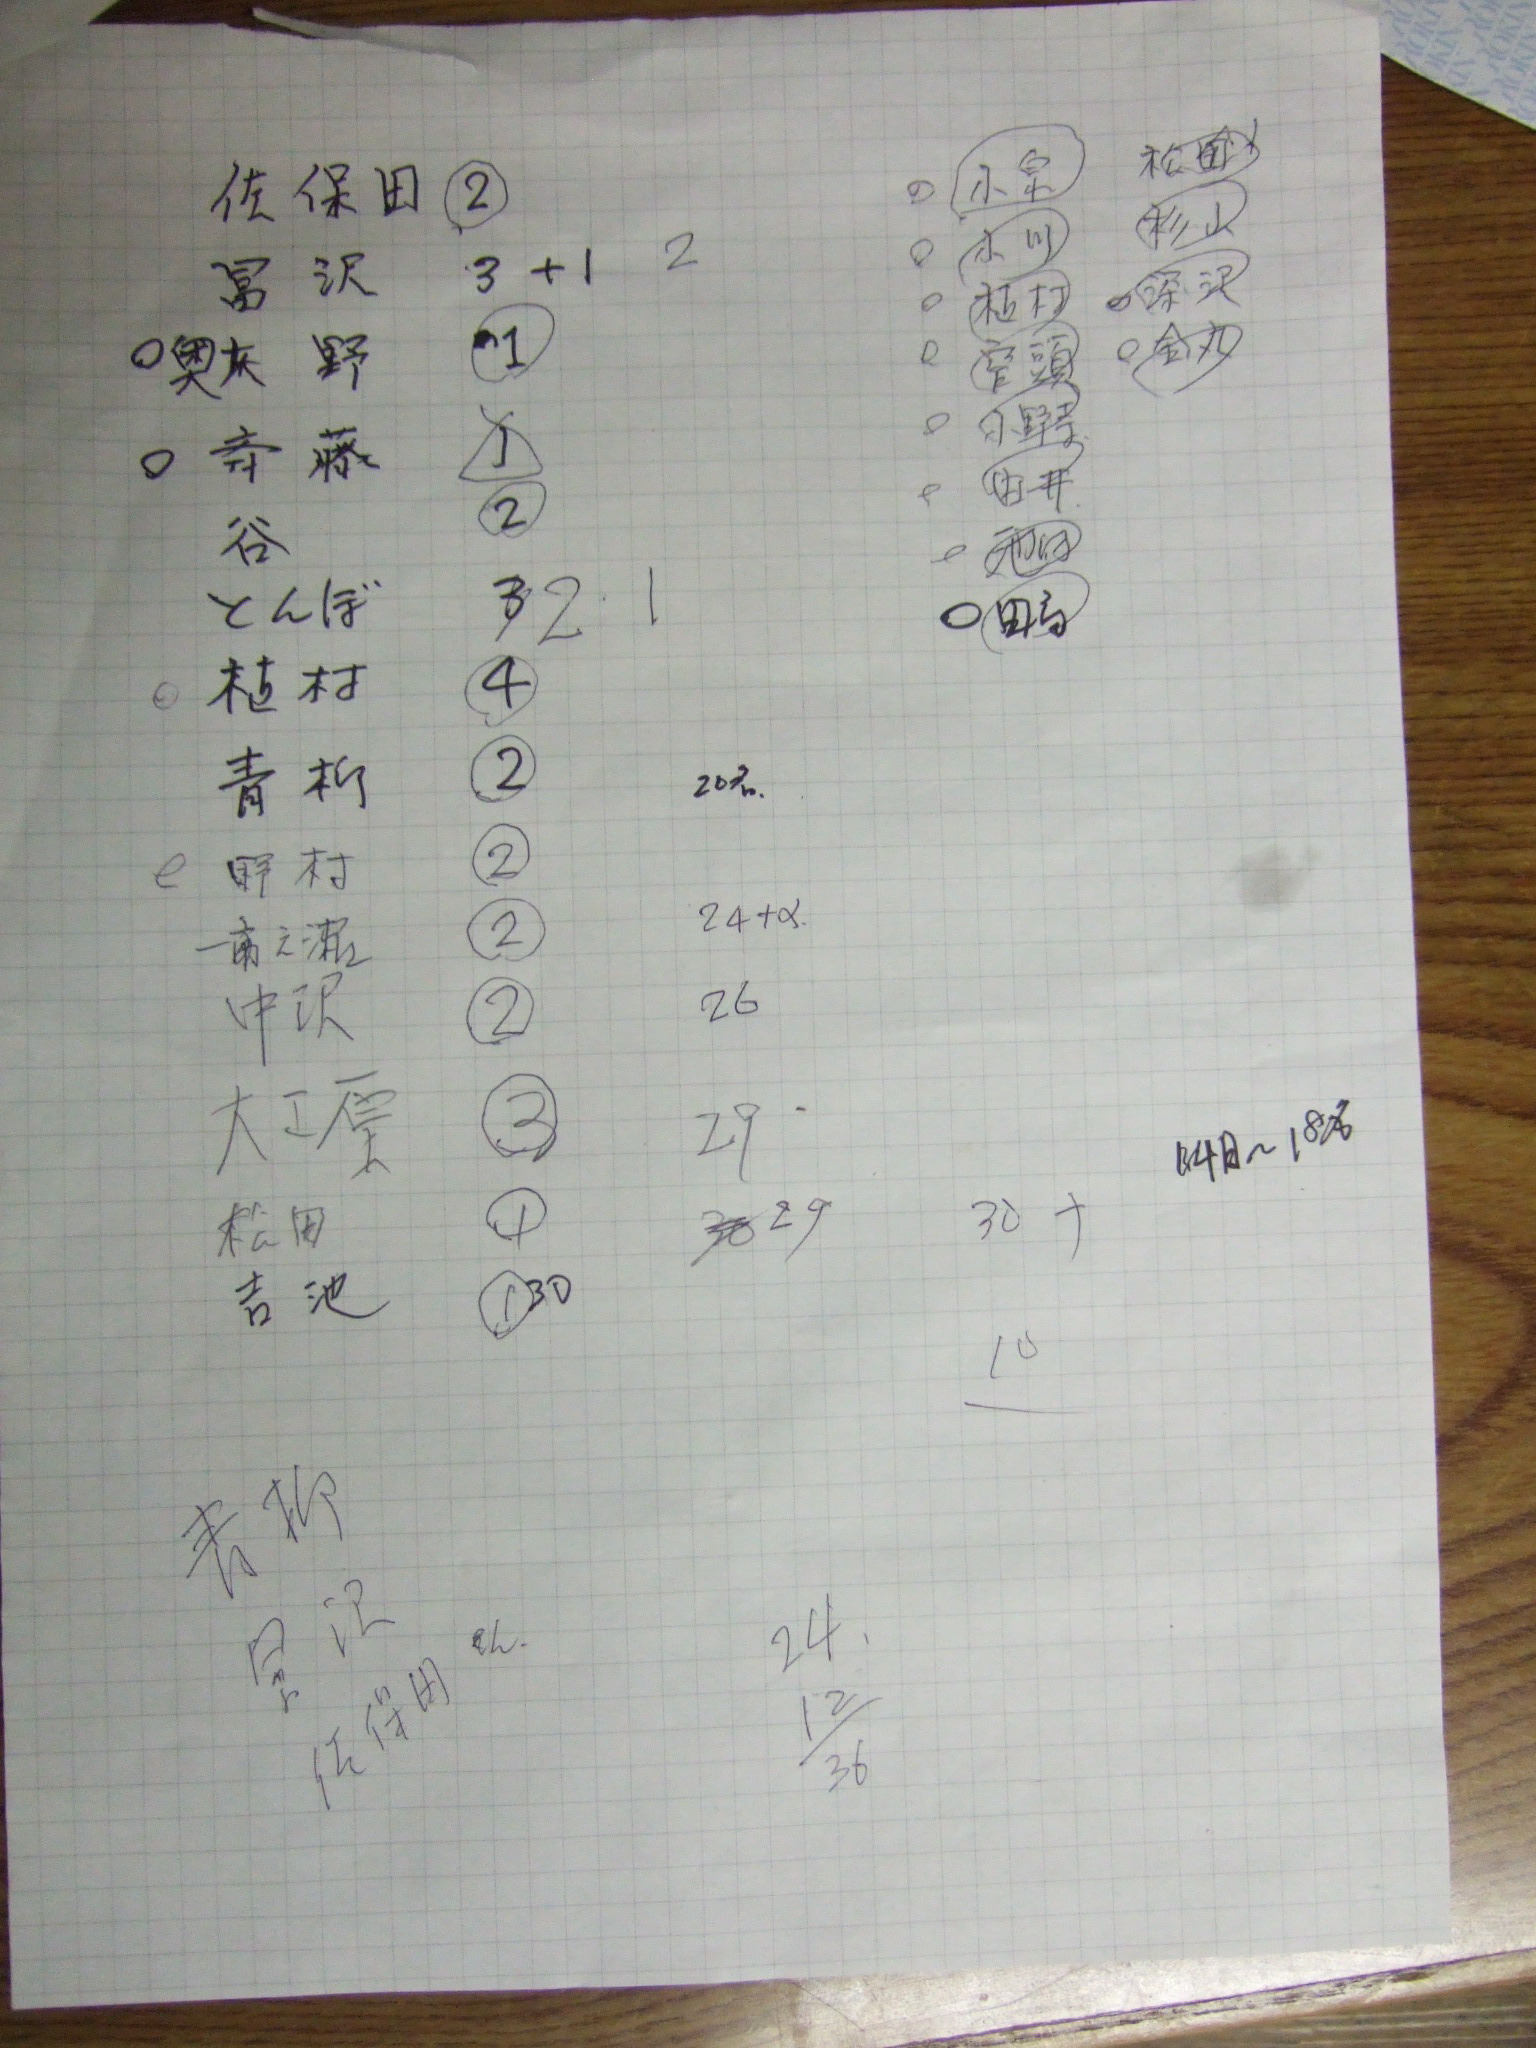 佐保田 ②
冨沢 3+1 2
○奥灰野 ①
○斉藤 1
谷 ②
とんぼ 2 1
○植村 ④
青柳 ② 20名.
野村 ②
②  24+α.
中沢 ② 26
大工原 ③ 29
松田 29 30+
吉池 ① 30
10
14日~18名
○小泉 松田
○小川 杉山
○植村 ○深沢
○菅頭 ○金丸
○小野寺
由井
池田
○田島
青柳
冨沢
佐保田さん.
24.
12
36